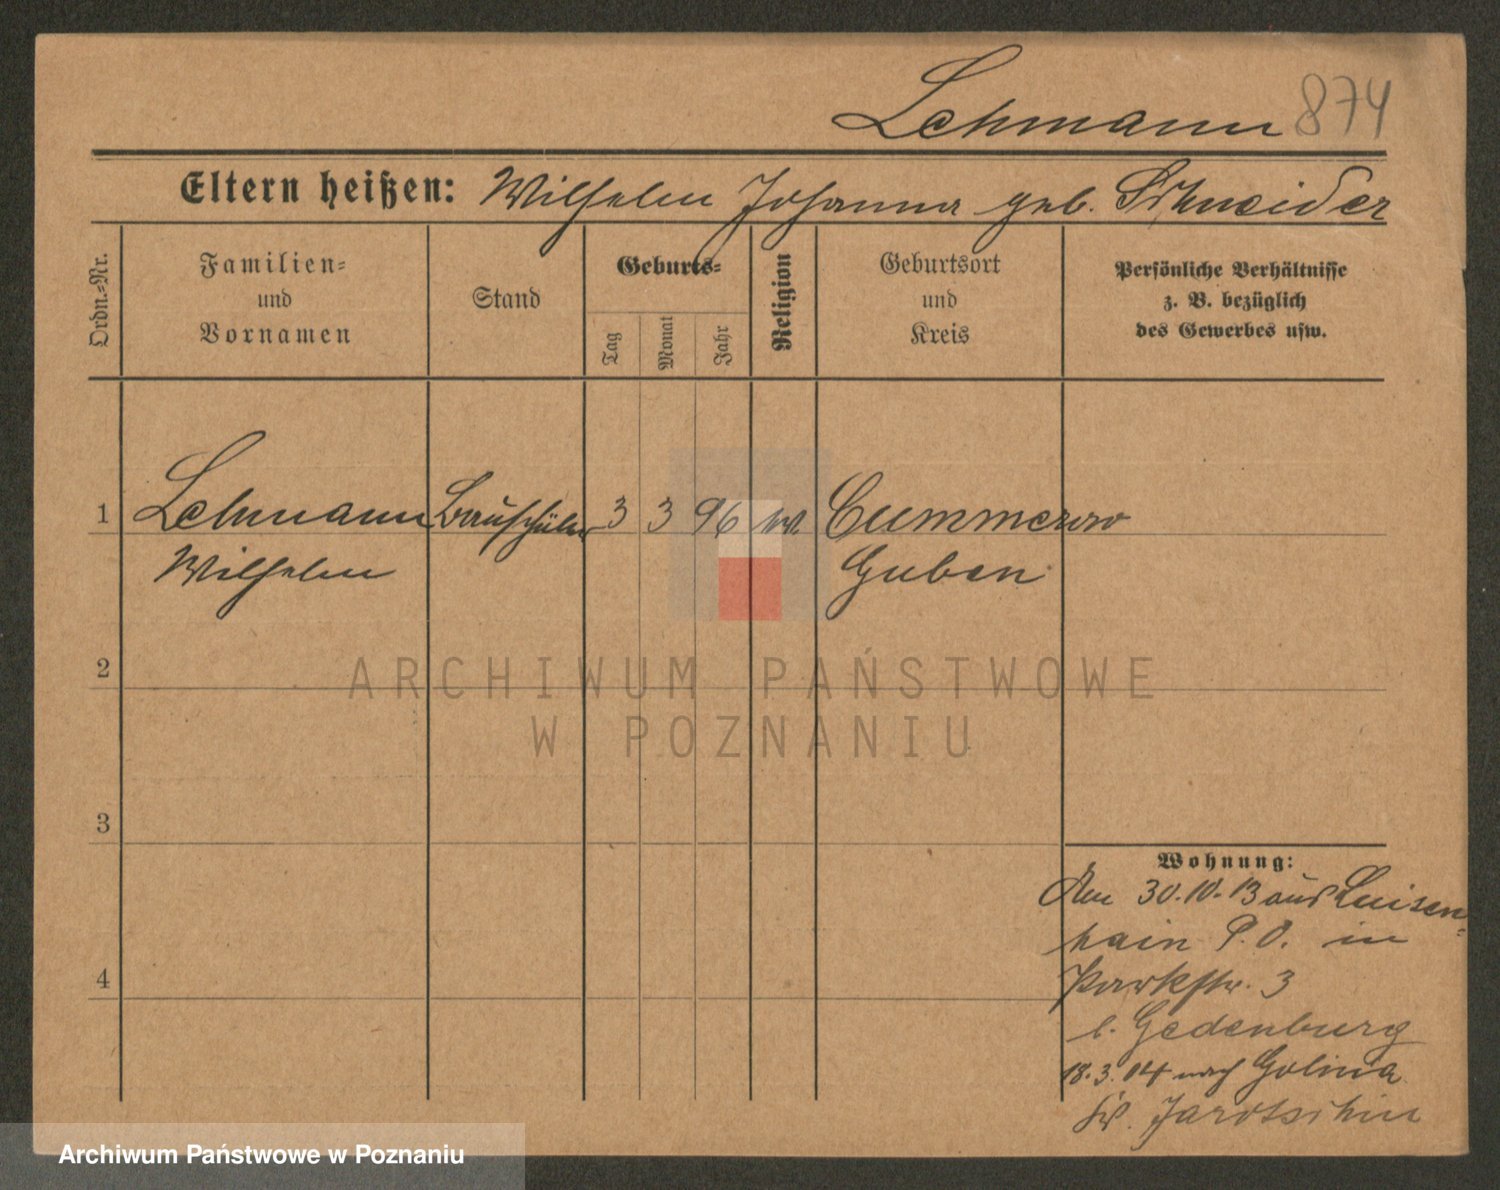 Lehmann 874
Eltern heißen: Wilhelm Johanna geb. Schneider
Ordn.-Nr.
Familien-
und
Vornamen
Stand
Geburts-
Tag
Monat
Jahr
Religion
Geburtsort
und
Kreis
Persönliche Verhältnisse
z. B. bezüglich
des Gewerbes usw.
1 Lehmann Bauschüler 3 3 96 ev. Cummerow
Wilhelm Guben
2
3
4
Wohnung:
Am 30.10.13 aus Luisen-
hain P.O. in
Parkstr. 3
b. Gedenburg
18.3.14 nach Golina
Kr. Jarotschin
ARCHIWUM PAŃSTWOWE
W POZNANIU
Archiwum Państwowe w Poznaniu